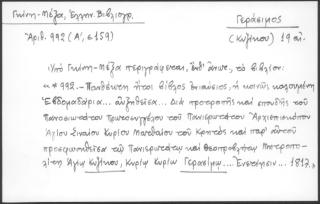 Γκίνη - Μέξα, Ἑλλην. Βιβλιογρ.
Γεράσιμος
Ἀριθ. 992 (Α', σ 159)
(Κυζίκου) 19 αἰ.
Ὑπὸ Γκίνη-Μέξα περιγράφεται, ἐνθ' ἀνωτ., τὸ βιβλίον:
« * 992. - Πανθέκτη ἤτοι βίβλος ἐνιαύσιος, ἡ κοινῶς καλουμένη
Ἑβδομαδάρια ... αὐξηθεῖσα ... Διὰ προτροπῆς καὶ σπουδῆς τοῦ
Πανοσιωτάτου Πρωτοσυγγέλου τοῦ Πανιερωτάτου Ἀρχιεπισκόπου
Ἁγίου Σιναίου Κυρίου Ματθαίου τοῦ Κρητὸς καὶ παρ' αὐτοῦ
προσφωνηθεῖσα τῷ Πανιερωτάτῳ καὶ Θεοπροβλήτῳ Μητροπο-
λίτῃ Ἁγίῳ Κυζίκου, Κυρίῳ Κυρίῳ Γερασίμῳ ... Ἐνετίησιν ... 1817.»